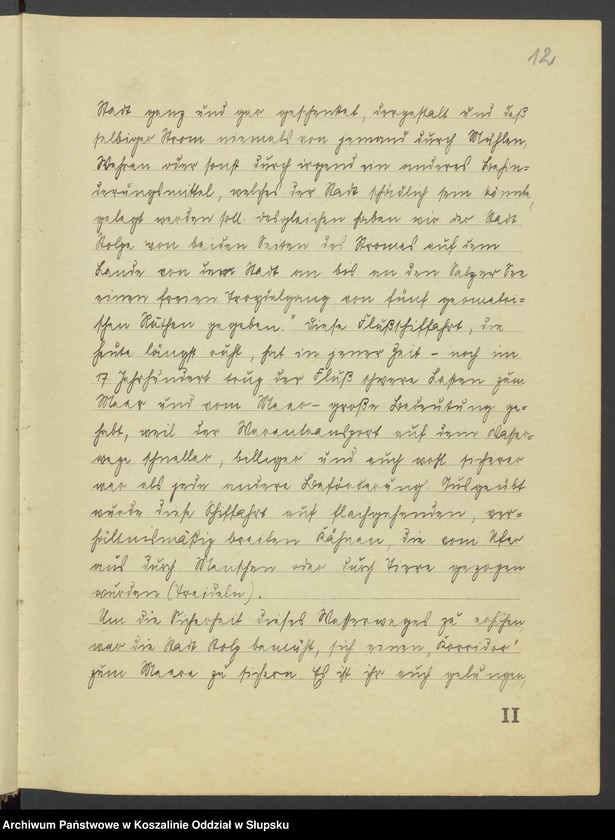 12
Stadt ganz und gar geschenket, dergestalt und daß
selbiger Strom niemals von jemand durch Mühlen,
Wehren oder sonst durch irgend ein anderes Behin-
derungsmittel, welches der Stadt schädlich sein könnte,
gelegt werden soll. Desgleichen haben wir der Stadt
Stolpe von beiden Seiten des Stromes auf dem
Lande von der Stadt an bis an den Salzer See
einen freien Troydelgang von fünf geometri-
schen Ruthen gegeben." Diese Flußschiffahrt, die
heute längst ruht, hat in jener Zeit - noch im
17. Jahrhundert trug der Fluß schwere Lasten zum
Meer und vom Meer - große Bedeutung ge-
habt, weil der Warentransport auf dem Wasser-
wege schneller, billiger und auch wohl sicherer
war als jede andere Beförderung. Ausgeübt
wurde diese Schiffahrt auf flachgehenden, ver-
hältnismäßig breiten Kähnen, die vom Ufer
aus durch Menschen oder durch Tiere gezogen
wurden (Treideln).
Um die Sicherheit dieses Wasserweges zu erhöhen,
war die Stadt Stolp bemüht, sich einen „Korridor"
zum Meere zu sichern. Es ist ihr auch gelungen,
II
Archiwum Państwowe w Koszalinie Oddział w Słupsku